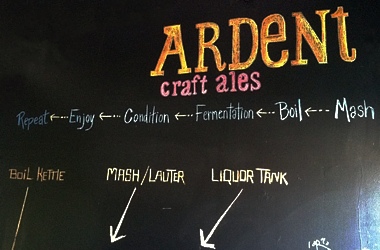 ARDENT
craft ales
Repeat ← Enjoy ← Condition ← Fermentation ← Boil ← Mash
BOIL KETTLE MASH/LAUTER LIQUOR TANK